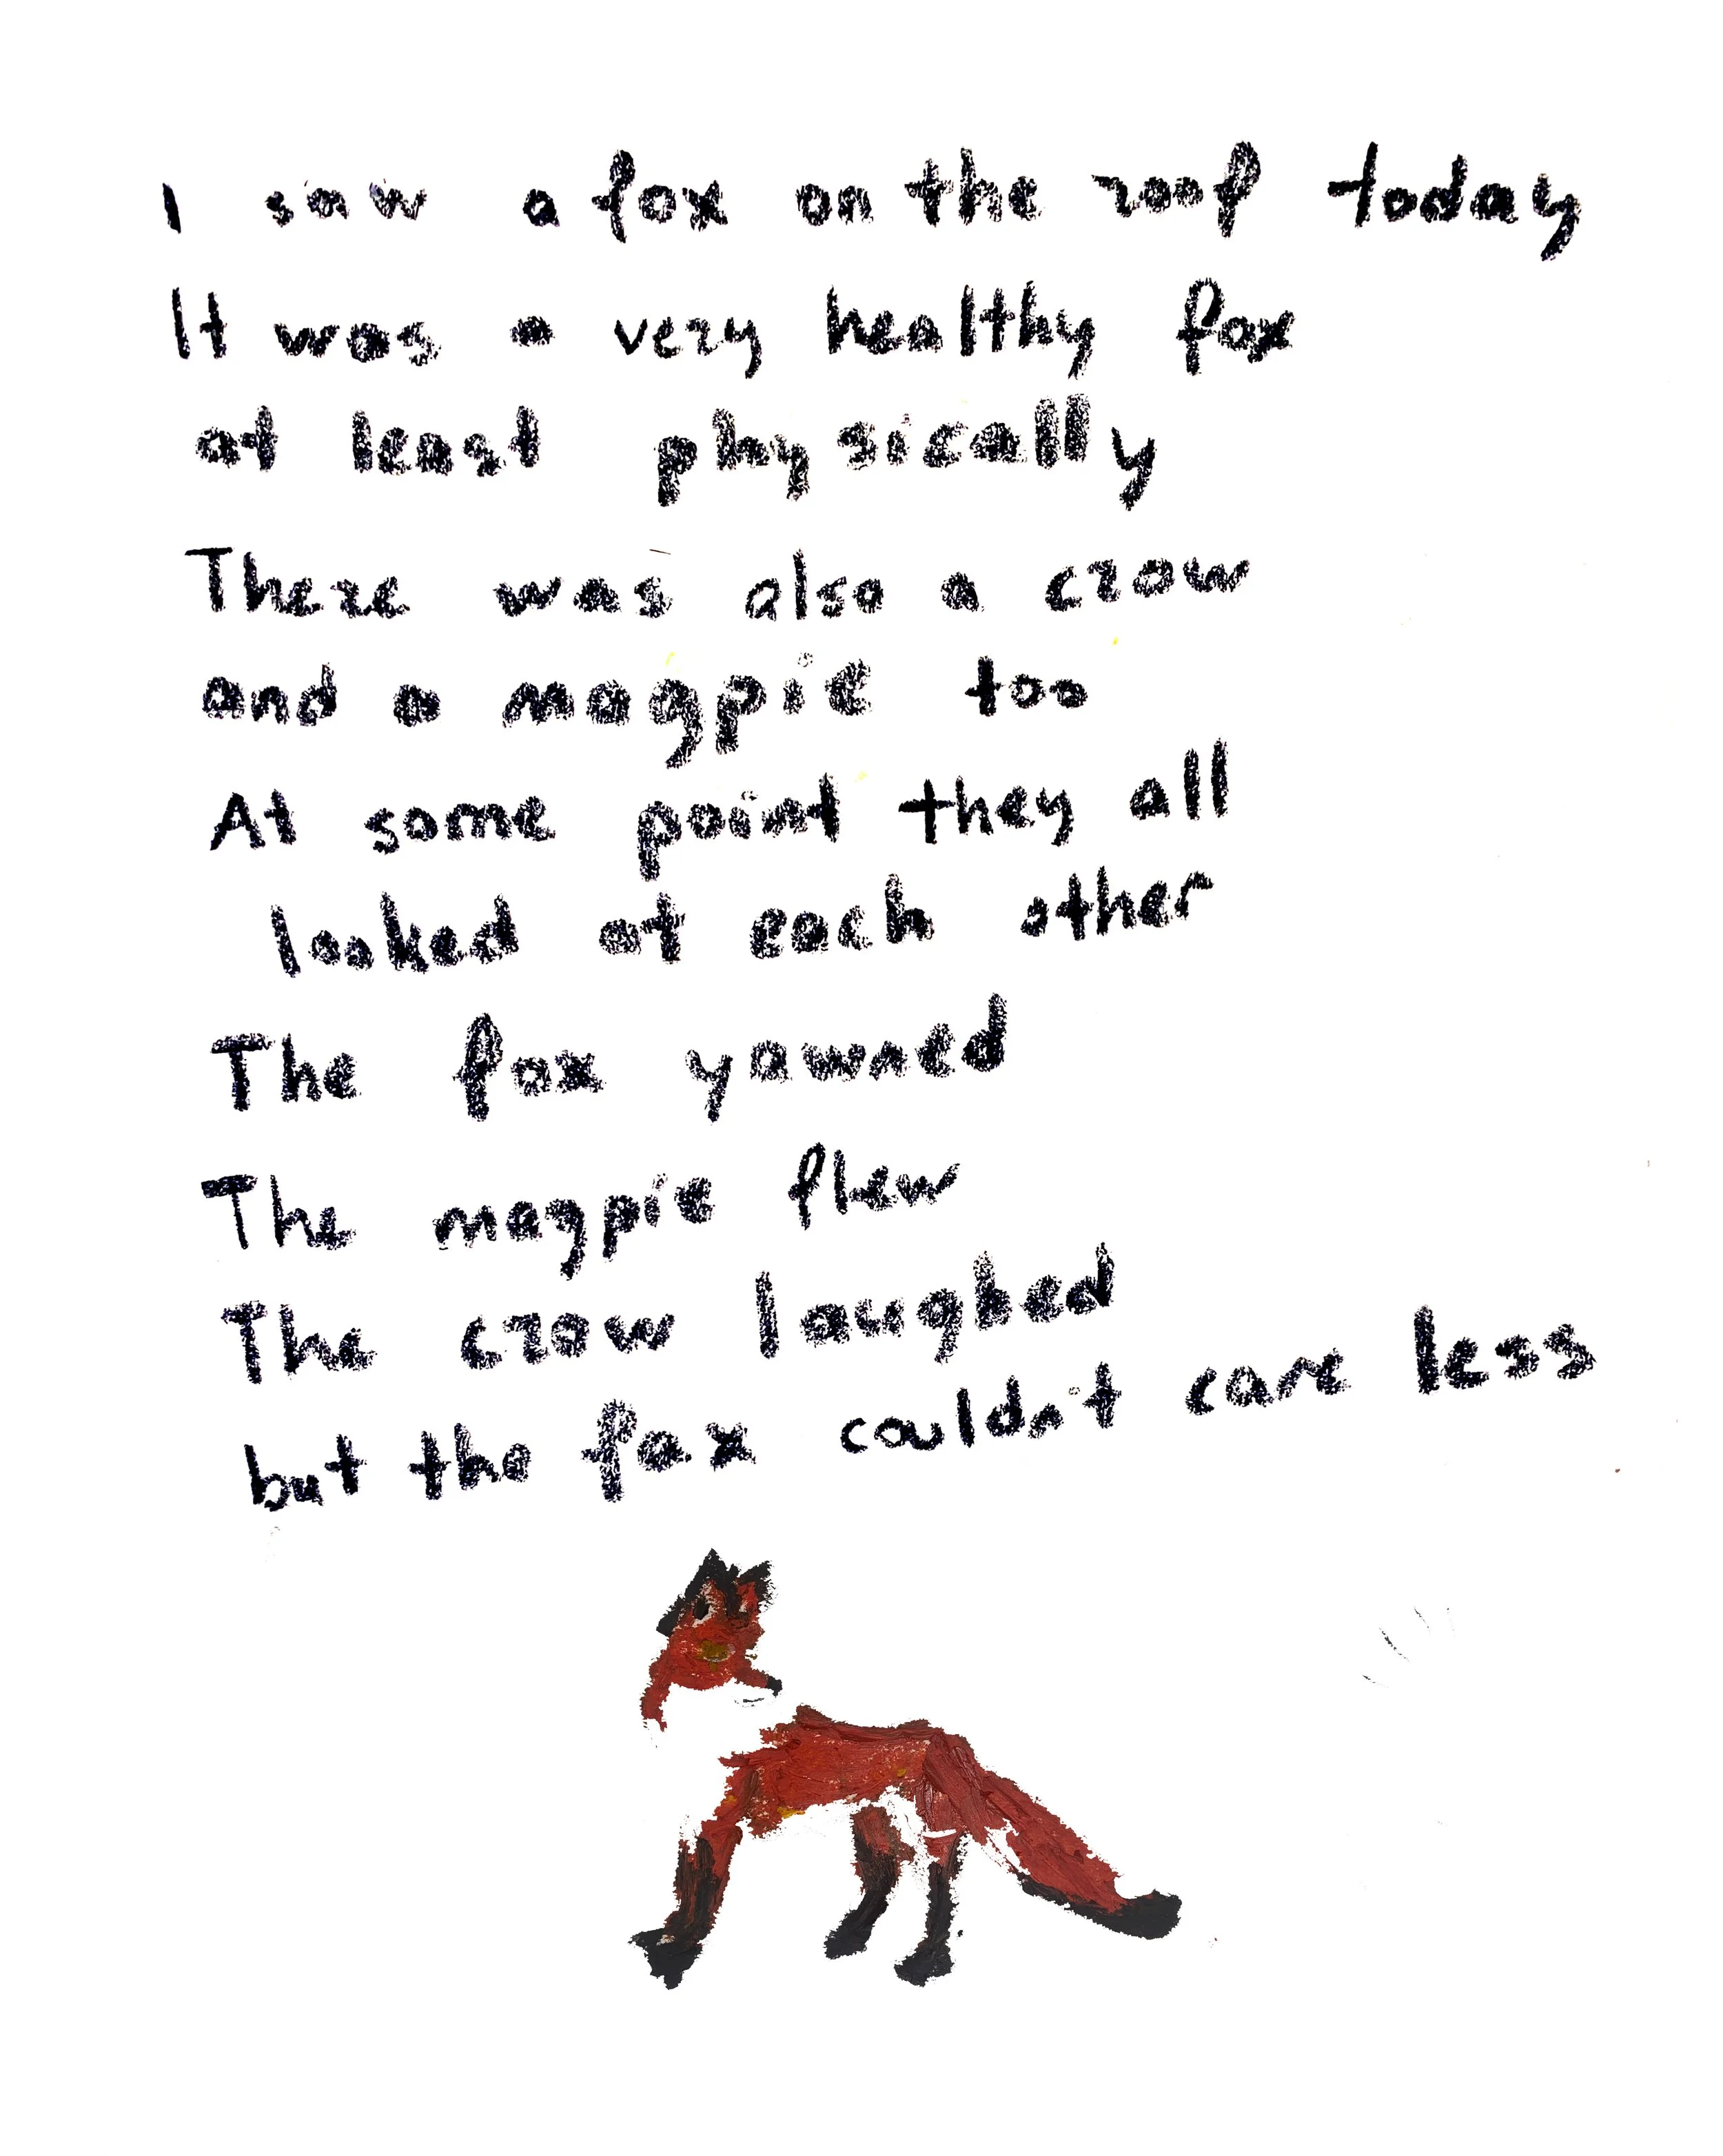 I saw a fox on the roof today
It was a very healthy fox
at least physically
There was also a crow
and a magpie too
At some point they all
looked at each other
The fox yawned
The magpie flew
The crow laughed
but the fox couldn't care less